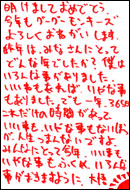 明けましておめでとう。
今年もグーグーモンキーズ
よろしくおねがいします。
昨年は、みなさんにとって
どんな年でしたか？僕は
いろんな事がありました。
いいねもあれば、いやな事
もありました。でも一年、365日
これだけの時間があって
いいも、いやな事もないほ
が、人生つまんないですよ
みんなにとって今年、いい事も
いやな事もふくめ、いろんな
事がおきますように。大阪